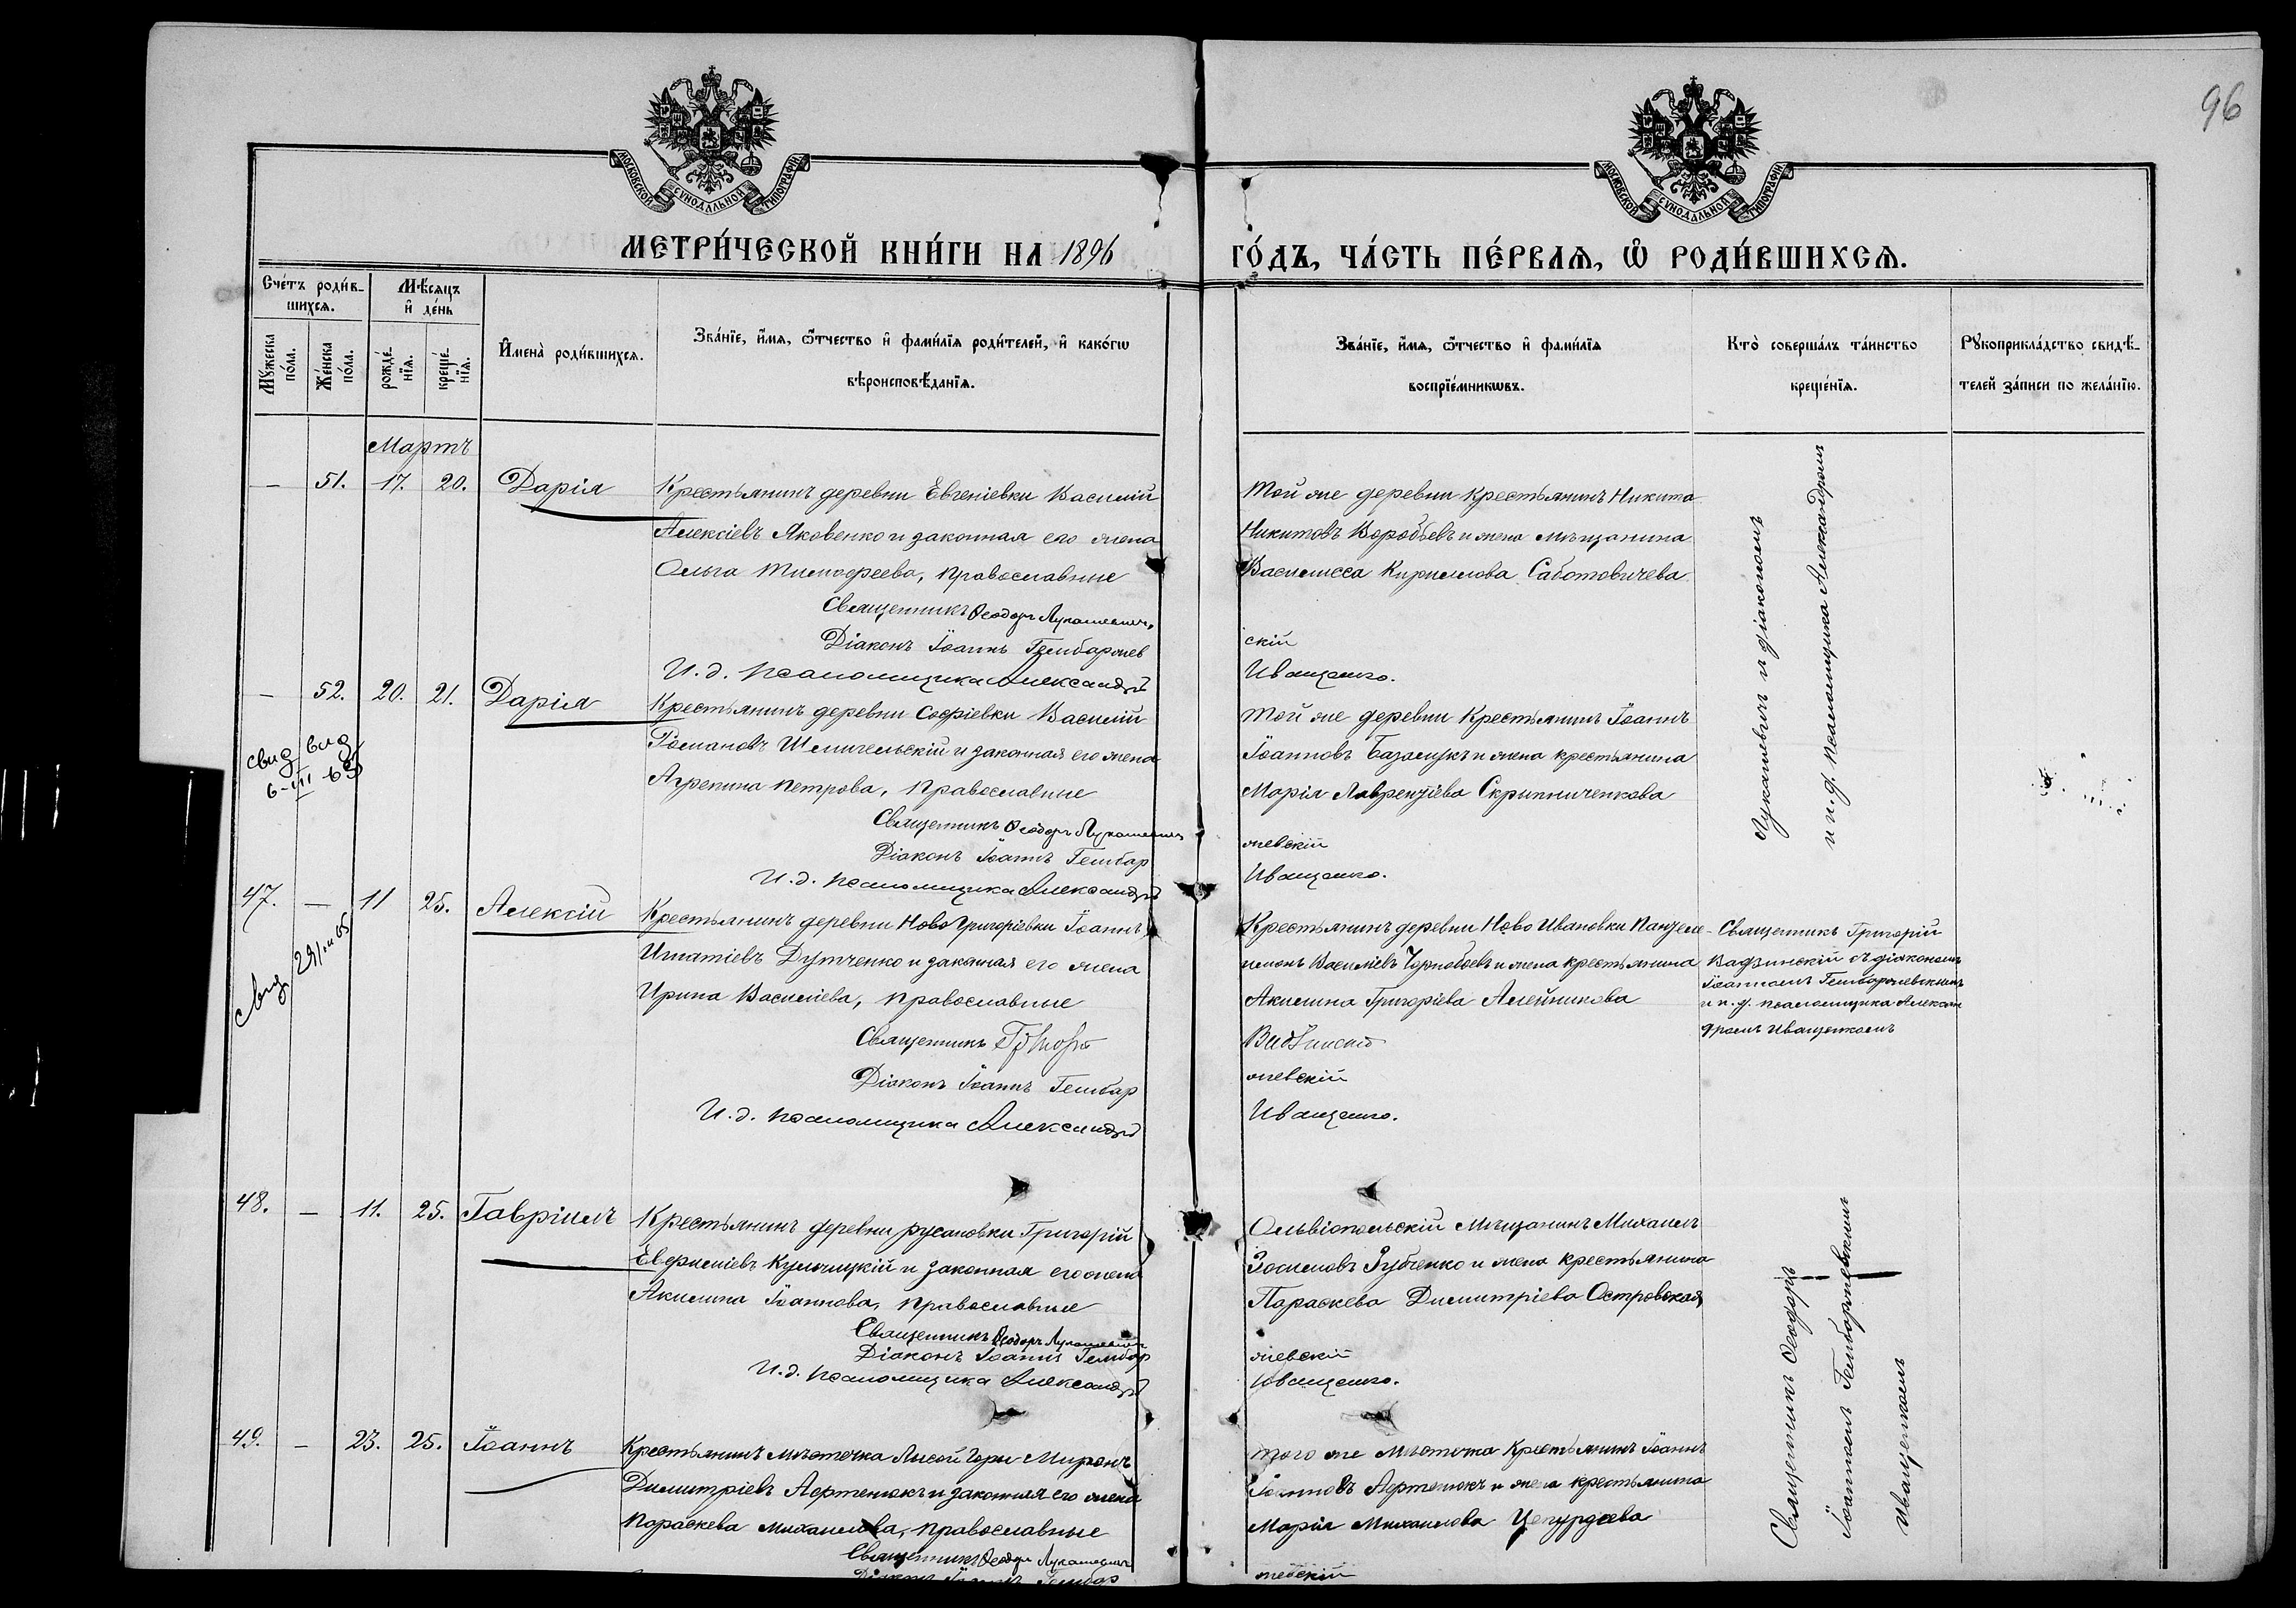 96
МОСКОВСКОЙ СѴНОДАЛЬНОЙ ТИПОГРАФІИ
МОСКОВСКОЙ СѴНОДАЛЬНОЙ ТИПОГРАФІИ
МЕТРИ́ЧЕСКОЙ КНИ́ГИ НА 1896 ГО́ДЪ, ЧА́СТЬ ПЕ́РВАѦ, Ѽ РОДИ́ВШИХСѦ.
Сче́тъ роди́в-
шихсѧ.
Мѣ́сяцъ
и҆ де́нь
Мꙋ́жеска
по́ла.
Же́нска
по́ла.
рожде́-
нїѧ.
креще́-
нїѧ.
И҆мена̀ роди́вшихсѧ.
Зва́нїе, и҆́мѧ, ѻ҆́тчество и҆ фами́лїѧ роди́телей, и҆ како́гѡ
вѣроисповѣ́данїѧ.
Зва́нїе, и҆́мѧ, ѻ҆́тчество и҆ фами́лїѧ
воспрїе́мникѡвъ.
Кто̀ соверша́лъ та́инство
креще́нїѧ.
Рꙋкоприкла́дство свидѣ́-
телей за́писи по жела́нїю.
Мартъ
— 51. 17. 20. Дарія
Крестьянинъ деревни Евгеніевки Василій
Алексіевъ Яковенко и законная его жена
Ольга Тимофеева, православные
Священникъ Ѳеодоръ Лукашевич
Діаконъ Іоаннъ Гембаржев
И. д. псаломщика Александръ
Той же деревни крестьянинъ Никита
Никитовъ Воробьевъ и жена мѣщанина
Василисса Кириллова Саботовичева
скій
Иващенко.
Лукашевич и діакономъ
и и. д. псаломщика Александромъ
— 52. 20. 21. Дарія
Крестьянинъ деревни Софіевки Василій
Романовъ Шмигельскій и законная его жена
Агрепина Петрова, православные
Священникъ Ѳеодоръ Лукашевич
Діаконъ Іоаннъ Гембар
И. д. псаломщика Александръ
Той же деревни крестьянинъ Іоаннъ
Іоанновъ Базалукъ и жена крестьянина
Марія Лаврентіева Скрипниченкова
жевскій
Иващенко.
свид
6-III 65
47. — 11 25. Алексій
Крестьянинъ деревни Ново Григоріевки Іоаннъ
Игнатіевъ Дутченко и законная его жена
Ирина Василіева, православные
Священникъ Григорій
Діаконъ Іоаннъ Гембар
И. д. псаломщика Александръ
Крестьянинъ деревни Ново Ивановки Пантеле-
имонъ Василіевъ Чорнобаевъ и жена крестьянина
Акилина Григоріева Алейникова
жевскій
Иващенко.
Священникъ Григорій
Вадзинскій съ діакономъ
Іоанномъ Гембаржевскимъ
и и. д. псаломщика Алексан
дромъ Иващенкомъ
свид
48. — 11. 25. Гавріилъ
Крестьянинъ деревни Русановки Григорій
Евфиміевъ Кульчицкій и законная его жена
Акилина Іоаннова, православные
Священникъ Ѳеодоръ Лукашевич
Діаконъ Іоаннъ Гембар
И. д. псаломщика Александръ
Ольвіопольскій мѣщанинъ Михаилъ
Зосимовъ Зубченко и жена крестьянина
Параскева Димитріева Островская
жевскій
Иващенко.
Священникъ Ѳеодоръ
Іоанномъ Гембаржевскимъ
Иващенкомъ
49. — 23. 25. Іоаннъ
Крестьянинъ мѣстечка Лысой Горы Миронъ
Димитріевъ Лертенюкъ и законная его жена
Параскева Михаилова, православные
Священникъ Ѳеодоръ Лукашевич
Діаконъ Іоаннъ Гембар
того же мѣстечка крестьянинъ Іоаннъ
Іоанновъ Лертенюкъ и жена крестьянина
Марія Михаилова
жевскій